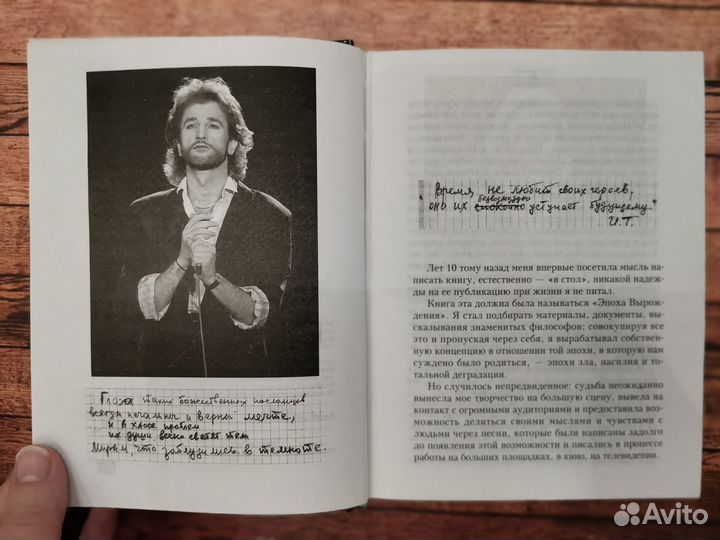 Глаза таких божественных посланцев
всегда печальны и верны мечте,
и в хаосе проблем
их души вечно светят тем
мирам, что заблудились в темноте.
"Время не любит своих героев,
безвозмездно
оно их спокойно уступает будущему."
И.Т.
Лет 10 тому назад меня впервые посетила мысль на-
писать книгу, естественно — «в стол», никакой надеж-
ды на ее публикацию при жизни я не питал.
Книга эта должна была называться «Эпоха Вырож-
дения». Я стал подбирать материалы, документы, вы-
сказывания знаменитых философов; совокупируя все
это и пропуская через себя, я вырабатывал собствен-
ную концепцию в отношении той эпохи, в которую
нам суждено было родиться, — эпохи зла, насилия и то-
тальной деградации.
Но случилось непредвиденное: судьба неожиданно
вынесла мое творчество на большую сцену, вывела на
контакт с огромными аудиториями и предоставила воз-
можность делиться своими мыслями и чувствами с
людьми через песни, которые были написаны задолго
до появления этой возможности и писались в процессе
работы на больших площадках, в кино, на телевидении.
Avito